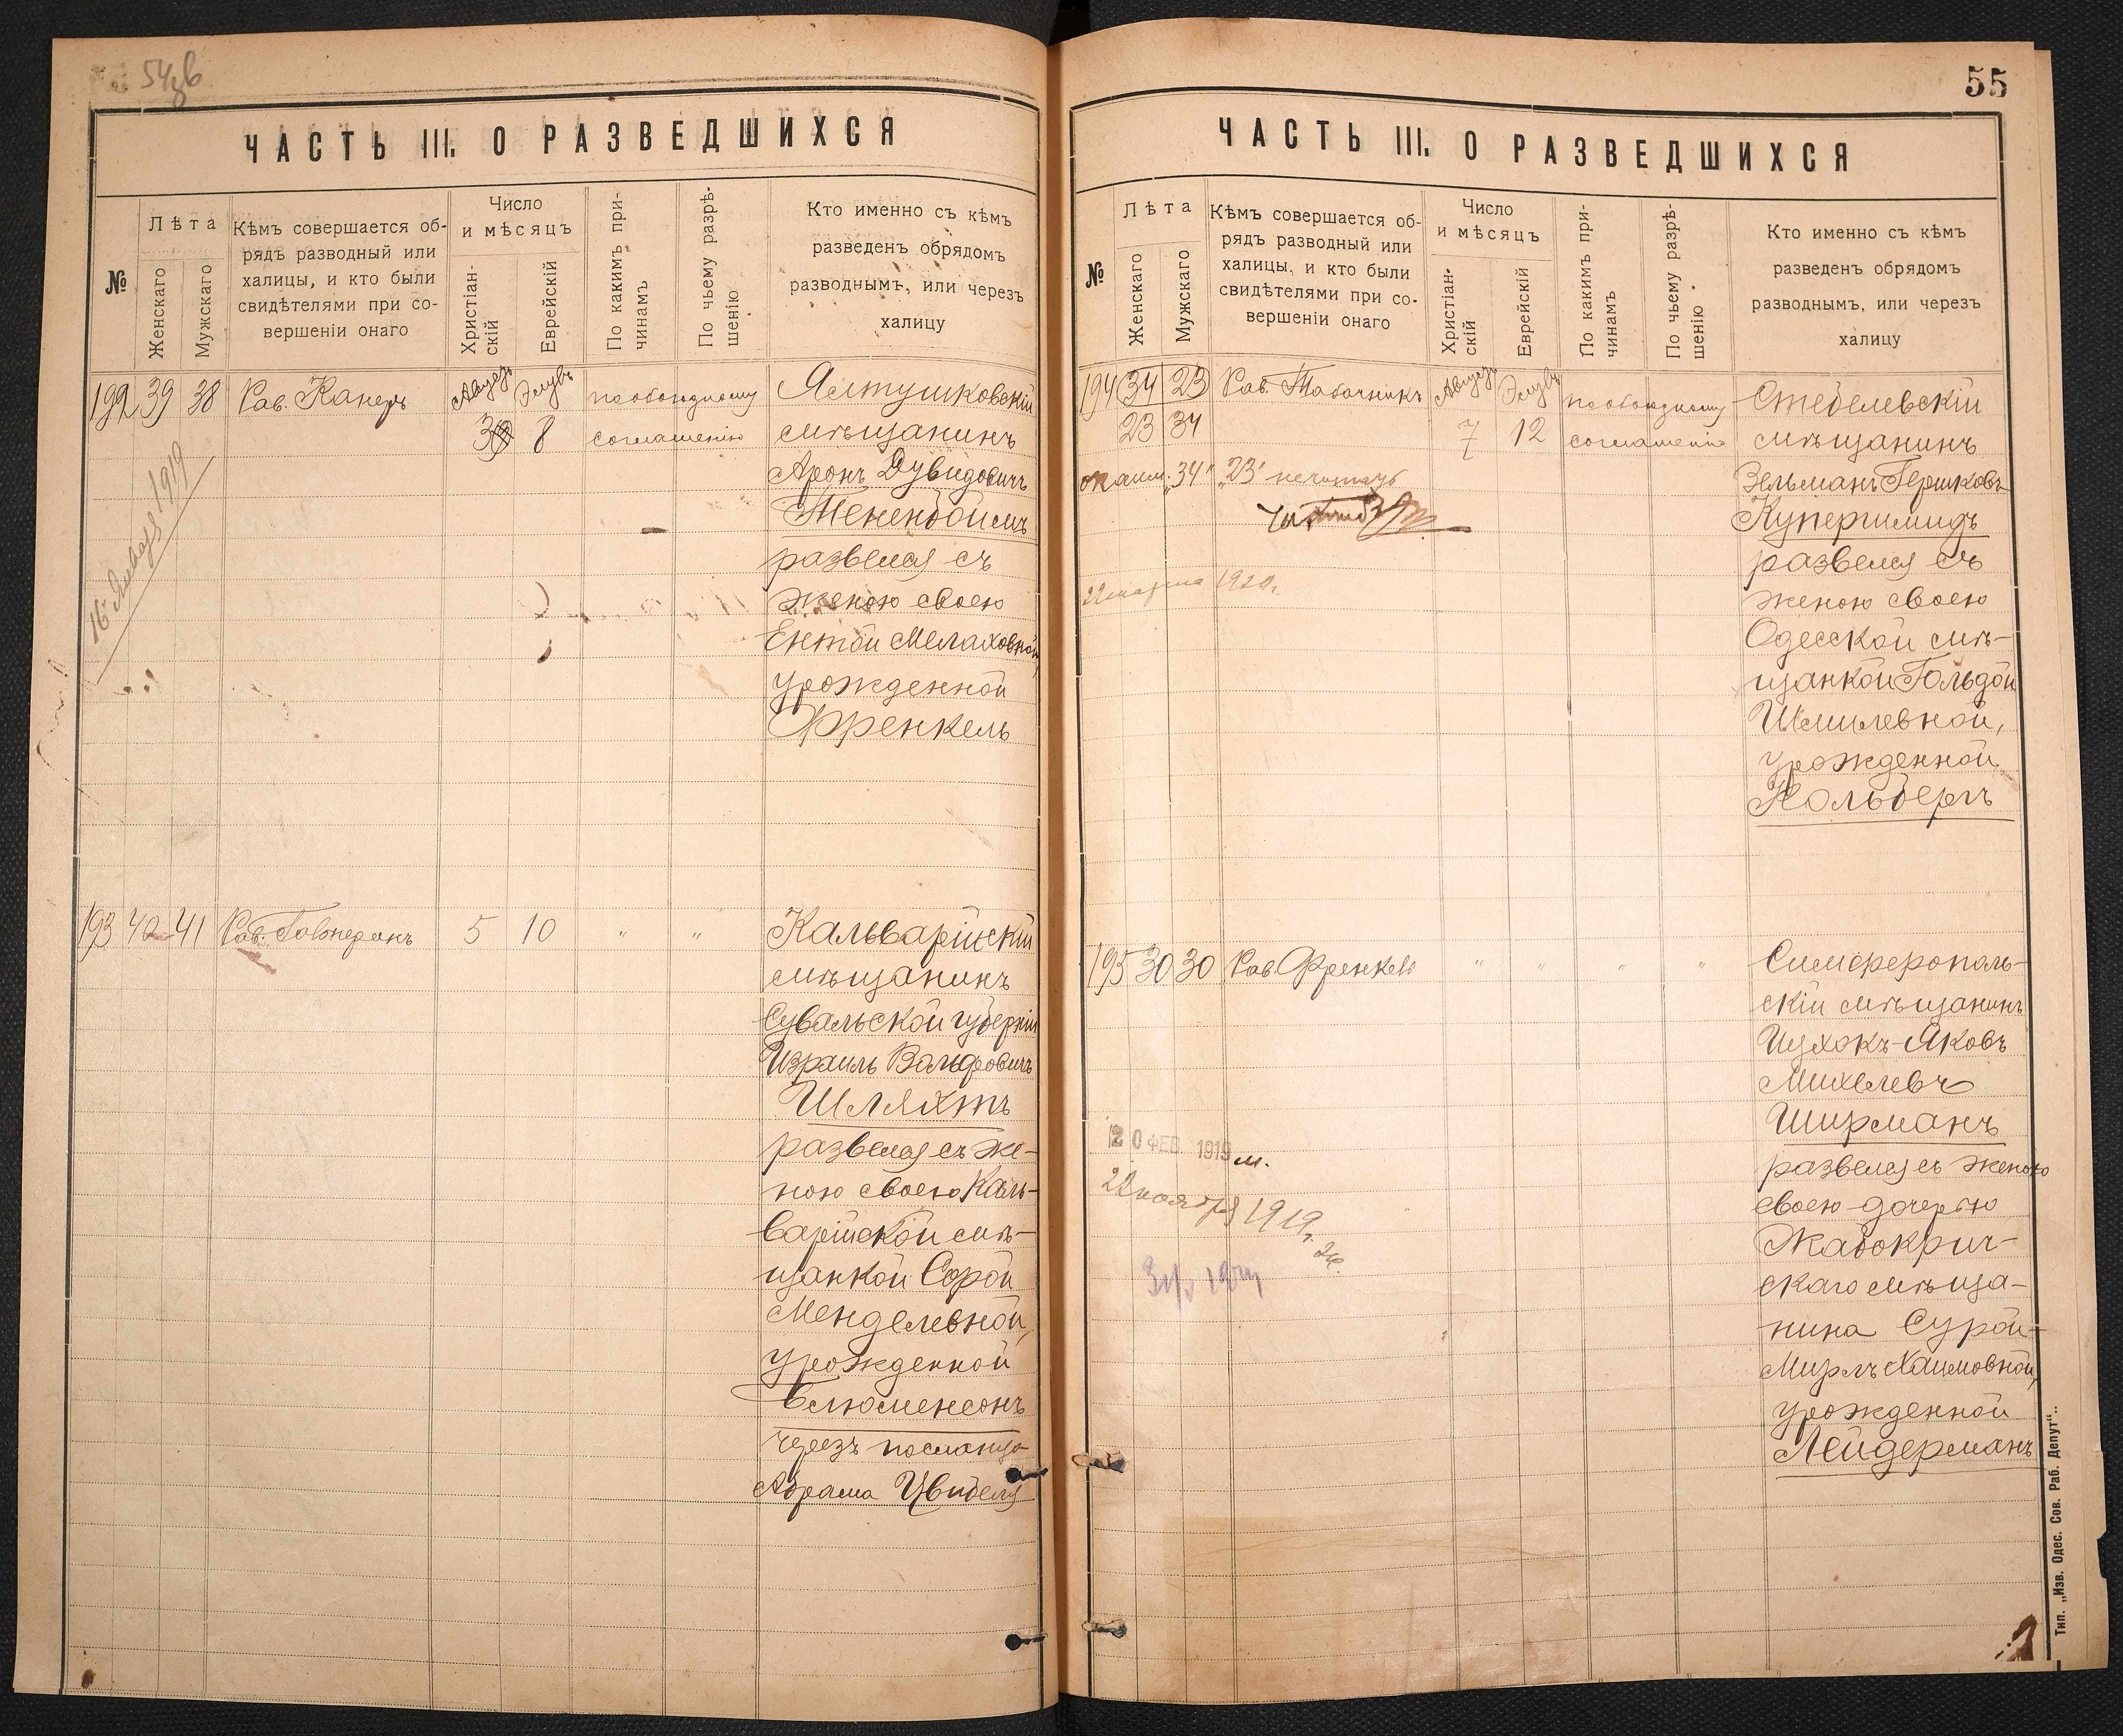 54зв
ЧАСТЬ III. О РАЗВЕДШИХСЯ
№
Лѣта
Женскаго
Мужскаго
Кѣмъ совершается об-
рядъ разводный или
халицы, и кто были
свидѣтелями при со-
вершеніи онаго
Число
и мѣсяцъ
Христіан-
скій
Еврейскій
По какимъ при-
чинамъ
По чьему разрѣ-
шенію
Кто именно съ кѣмъ
разведенъ обрядомъ
разводнымъ, или черезъ
халицу
192 39 38 Рав. Канеръ Августъ Элулъ по обоюдному
3 8 соглашенію
16 Января 1919
Ялтушковскій
мѣщанинъ
Аронъ Дувидовичъ
Тененбоймъ
развелся съ
женою своею
Ентой Мелаховной,
урожденной
Френкель
193 40 41 Рав. 5 10 " "
Кальварійскій
мѣщанинъ
Сувальской губерніи
Израиль Вольфовичъ
Шляхтъ
развелся съ же-
ною своею Каль-
варійской мѣ-
щанкой Сорой
Менделевной,
урожденной
Блюменсонъ
черезъ посланца
Абрама Цвибеля
55
ЧАСТЬ III. О РАЗВЕДШИХСЯ
№
Лѣта
Женскаго
Мужскаго
Кѣмъ совершается об-
рядъ разводный или
халицы, и кто были
свидѣтелями при со-
вершеніи онаго
Число
и мѣсяцъ
Христіан-
скій
Еврейскій
По какимъ при-
чинамъ
По чьему разрѣ-
шенію
Кто именно съ кѣмъ
разведенъ обрядомъ
разводнымъ, или черезъ
халицу
194 34 23 Рав. Табачникъ Августъ Элулъ по обоюдному
23 34 7 12 соглашенію
"34" "23" не читать
22 марта 1920г.
Стеблевскій
мѣщанинъ
Зельманъ Гершковъ
Купершмидъ
развелся съ
женою своею
Одесской мѣ-
щанкой Гольдой
Шмилевной,
урожденной
Кольбергъ
195 30 30 Рав. Френкель " " " "
20 ФЕВ. 1919 м.
22 ноября 1919г.
ж.
Симферополь-
скій мѣщанинъ
Ицхокъ-Яковъ
Михелевъ
Ширманъ
развелся съ женою
своею дочерью
Жабокрич-
скаго мѣща-
нина Сурой-
Мирлъ Хаимовной,
урожденной
Лейдерманъ
Тип. „Изв. Одес. Сов. Раб. Депут“..